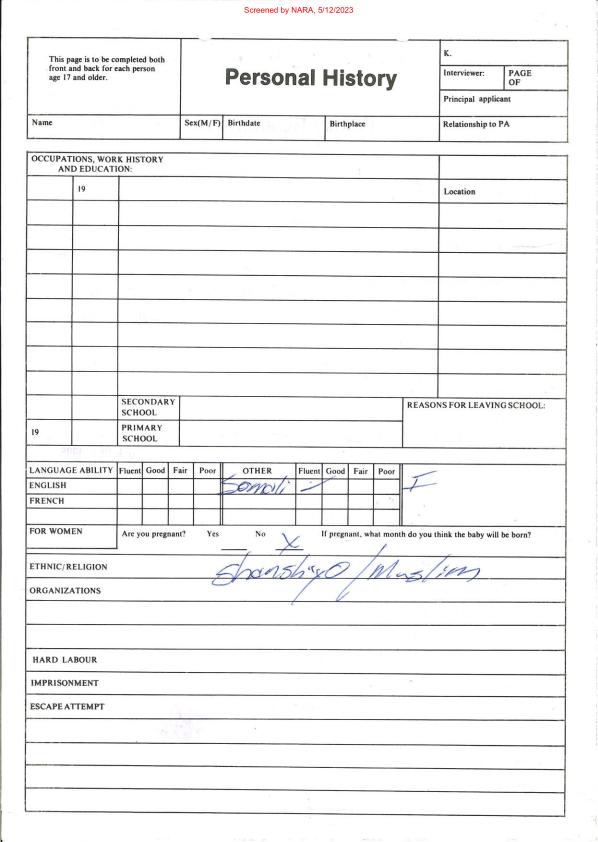 Screened by NARA, 5/12/2023
This page is to be completed both
front and back for each person
age 17 and older.
Personal History
K.
Interviewer: PAGE
OF
Principal applicant
Name Sex(M/F) Birthdate Birthplace Relationship to PA
OCCUPATIONS, WORK HISTORY
AND EDUCATION:
19 Location
SECONDARY
SCHOOL
REASONS FOR LEAVING SCHOOL:
19 PRIMARY
SCHOOL
LANGUAGE ABILITY Fluent Good Fair Poor OTHER Fluent Good Fair Poor
ENGLISH Somali ✓ I
FRENCH
FOR WOMEN Are you pregnant? Yes No X If pregnant, what month do you think the baby will be born?
ETHNIC/RELIGION /Muslim
ORGANIZATIONS
HARD LABOUR
IMPRISONMENT
ESCAPE ATTEMPT